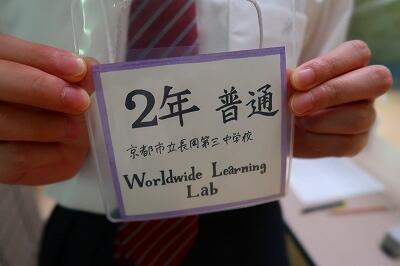 2年 普通
京都市立長岡第三中学校
Worldwide Learning
Lab